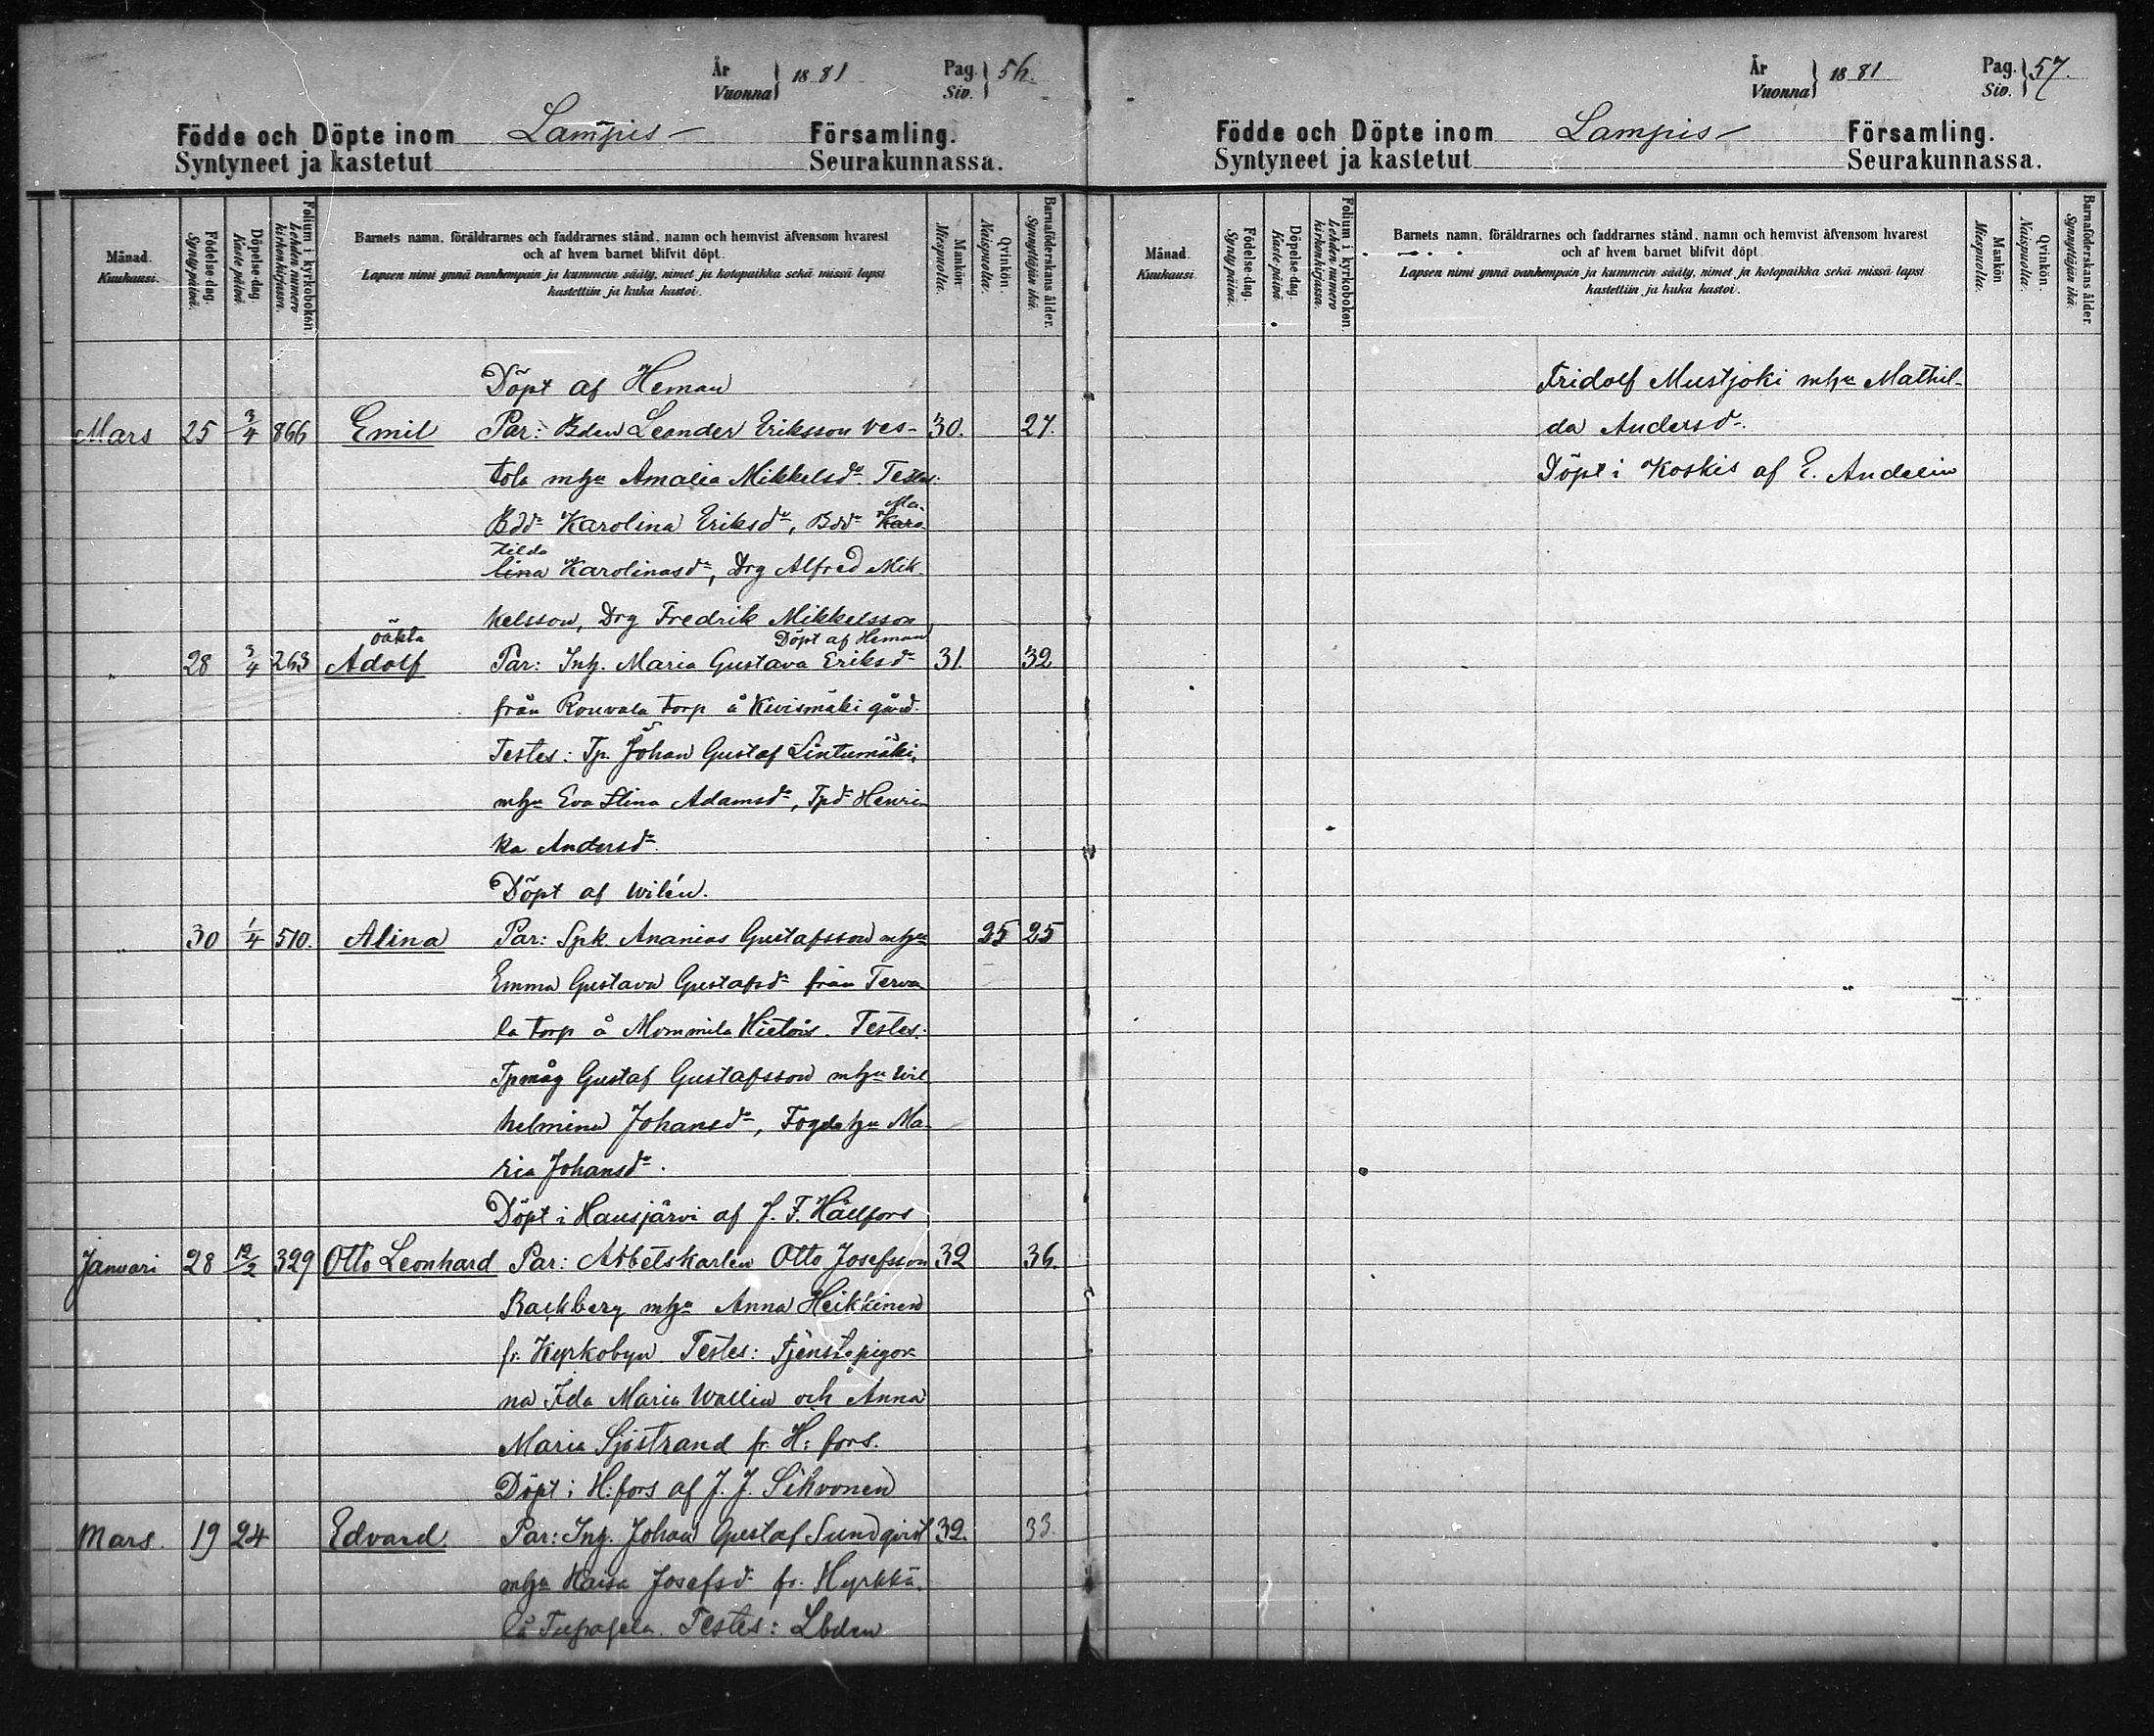 År
Vuonna } 1881
Pag.
Siv. } 56.
Födde och Döpte inom Lampis Församling.
Syntyneet ja kastetut Seurakunnassa.
Månad. Kuukausi.
Födelse-dag. Syntypäivä.
Döpelse-dag. Kaste-päivä.
Folium i kyrkoboken. Lehden numero kirkonkirjassa.
Barnets namn, föräldrarnes och faddrarnes stånd, namn och hemvist äfvensom hvarest
och af hvem barnet blifvit döpt.
Lapsen nimi ynnä vanhempain ja kummein sääty, nimet ja kotopaikka sekä missä lapsi
kastettiin ja kuka kastoi.
Mankön. Miespuolia.
Qvinkön. Naispuolia.
Barnaföderskans ålder. Synnyttäjän ikä.
Döpt af Heman
Mars 25 3/4 866 Emil Par: Bden Leander Eriksson Ves- 30. 27.
tola mhu Amalia Mikkelsdr Testes:
Bddr Karolina Eriksdr, Bddr Karo- Ma-
lina tilda Karolinasdr, Drg Alfred Mik-
kelsson, Drg Fredrik Mikkelsson
Döpt af Heman
" 28 3/4 263 oäkta Adolf Par: Inh. Maria Gustava Eriksdr 31. 32
från Rouvala torp å Kivismäki gård.
Testes: Tp. Johan Gustaf Lintumäki,
mhu Eva Stina Adamsdr, Tpdr Henri-
ka Andersdr.
Döpt af Wilén.
" 30 1/4 510. Alina Par: Spk. Ananias Gustafsson mhu 25 25
Emma Gustava Gustafsdr från Terva-
la torp å Mommila Hietois. Testes:
Tpmåg Gustaf Gustafsson mhu Wil-
helmina Johansdr, Fogdehu Ma-
ria Johansdr.
Döpt i Hausjärvi af J. F. Hällfors
Januari 28 12/2 329 Otto Leonhard Par: Arbetskarlen Otto Josefsson 32 36.
Backberg mhu Anna Heikkinen
fr. Kyrkobyn Testes: Tjenstepigor-
na Ida Maria Wallin och Anna
Maria Sjöstrand fr. H:fors.
Döpt i H:fors af J. J. Sihvonen
Mars. 19 24 Edvard. Par: Inh. Johan Gustaf Sundqvist 32. 33.
mhu Kaisa Josefsdr fr. Hyrkkä-
lä Testes: Lbden
År
Vuonna } 1881
Pag.
Siv. } 57.
Födde och Döpte inom Lampis Församling.
Syntyneet ja kastetut Seurakunnassa.
Månad. Kuukausi.
Födelse-dag. Syntypäivä.
Döpelse-dag. Kaste-päivä.
Folium i kyrkoboken. Lehden numero kirkonkirjassa.
Barnets namn, föräldrarnes och faddrarnes stånd, namn och hemvist äfvensom hvarest
och af hvem barnet blifvit döpt.
Lapsen nimi ynnä vanhempain ja kummein sääty, nimet ja kotopaikka sekä missä lapsi
kastettiin ja kuka kastoi.
Mankön. Miespuolia.
Qvinkön. Naispuolia.
Barnaföderskans ålder. Synnyttäjän ikä.
Fridolf Mustjoki mhu Mathil-
da Andersdr.
Döpt i Koskis af E. Andelin